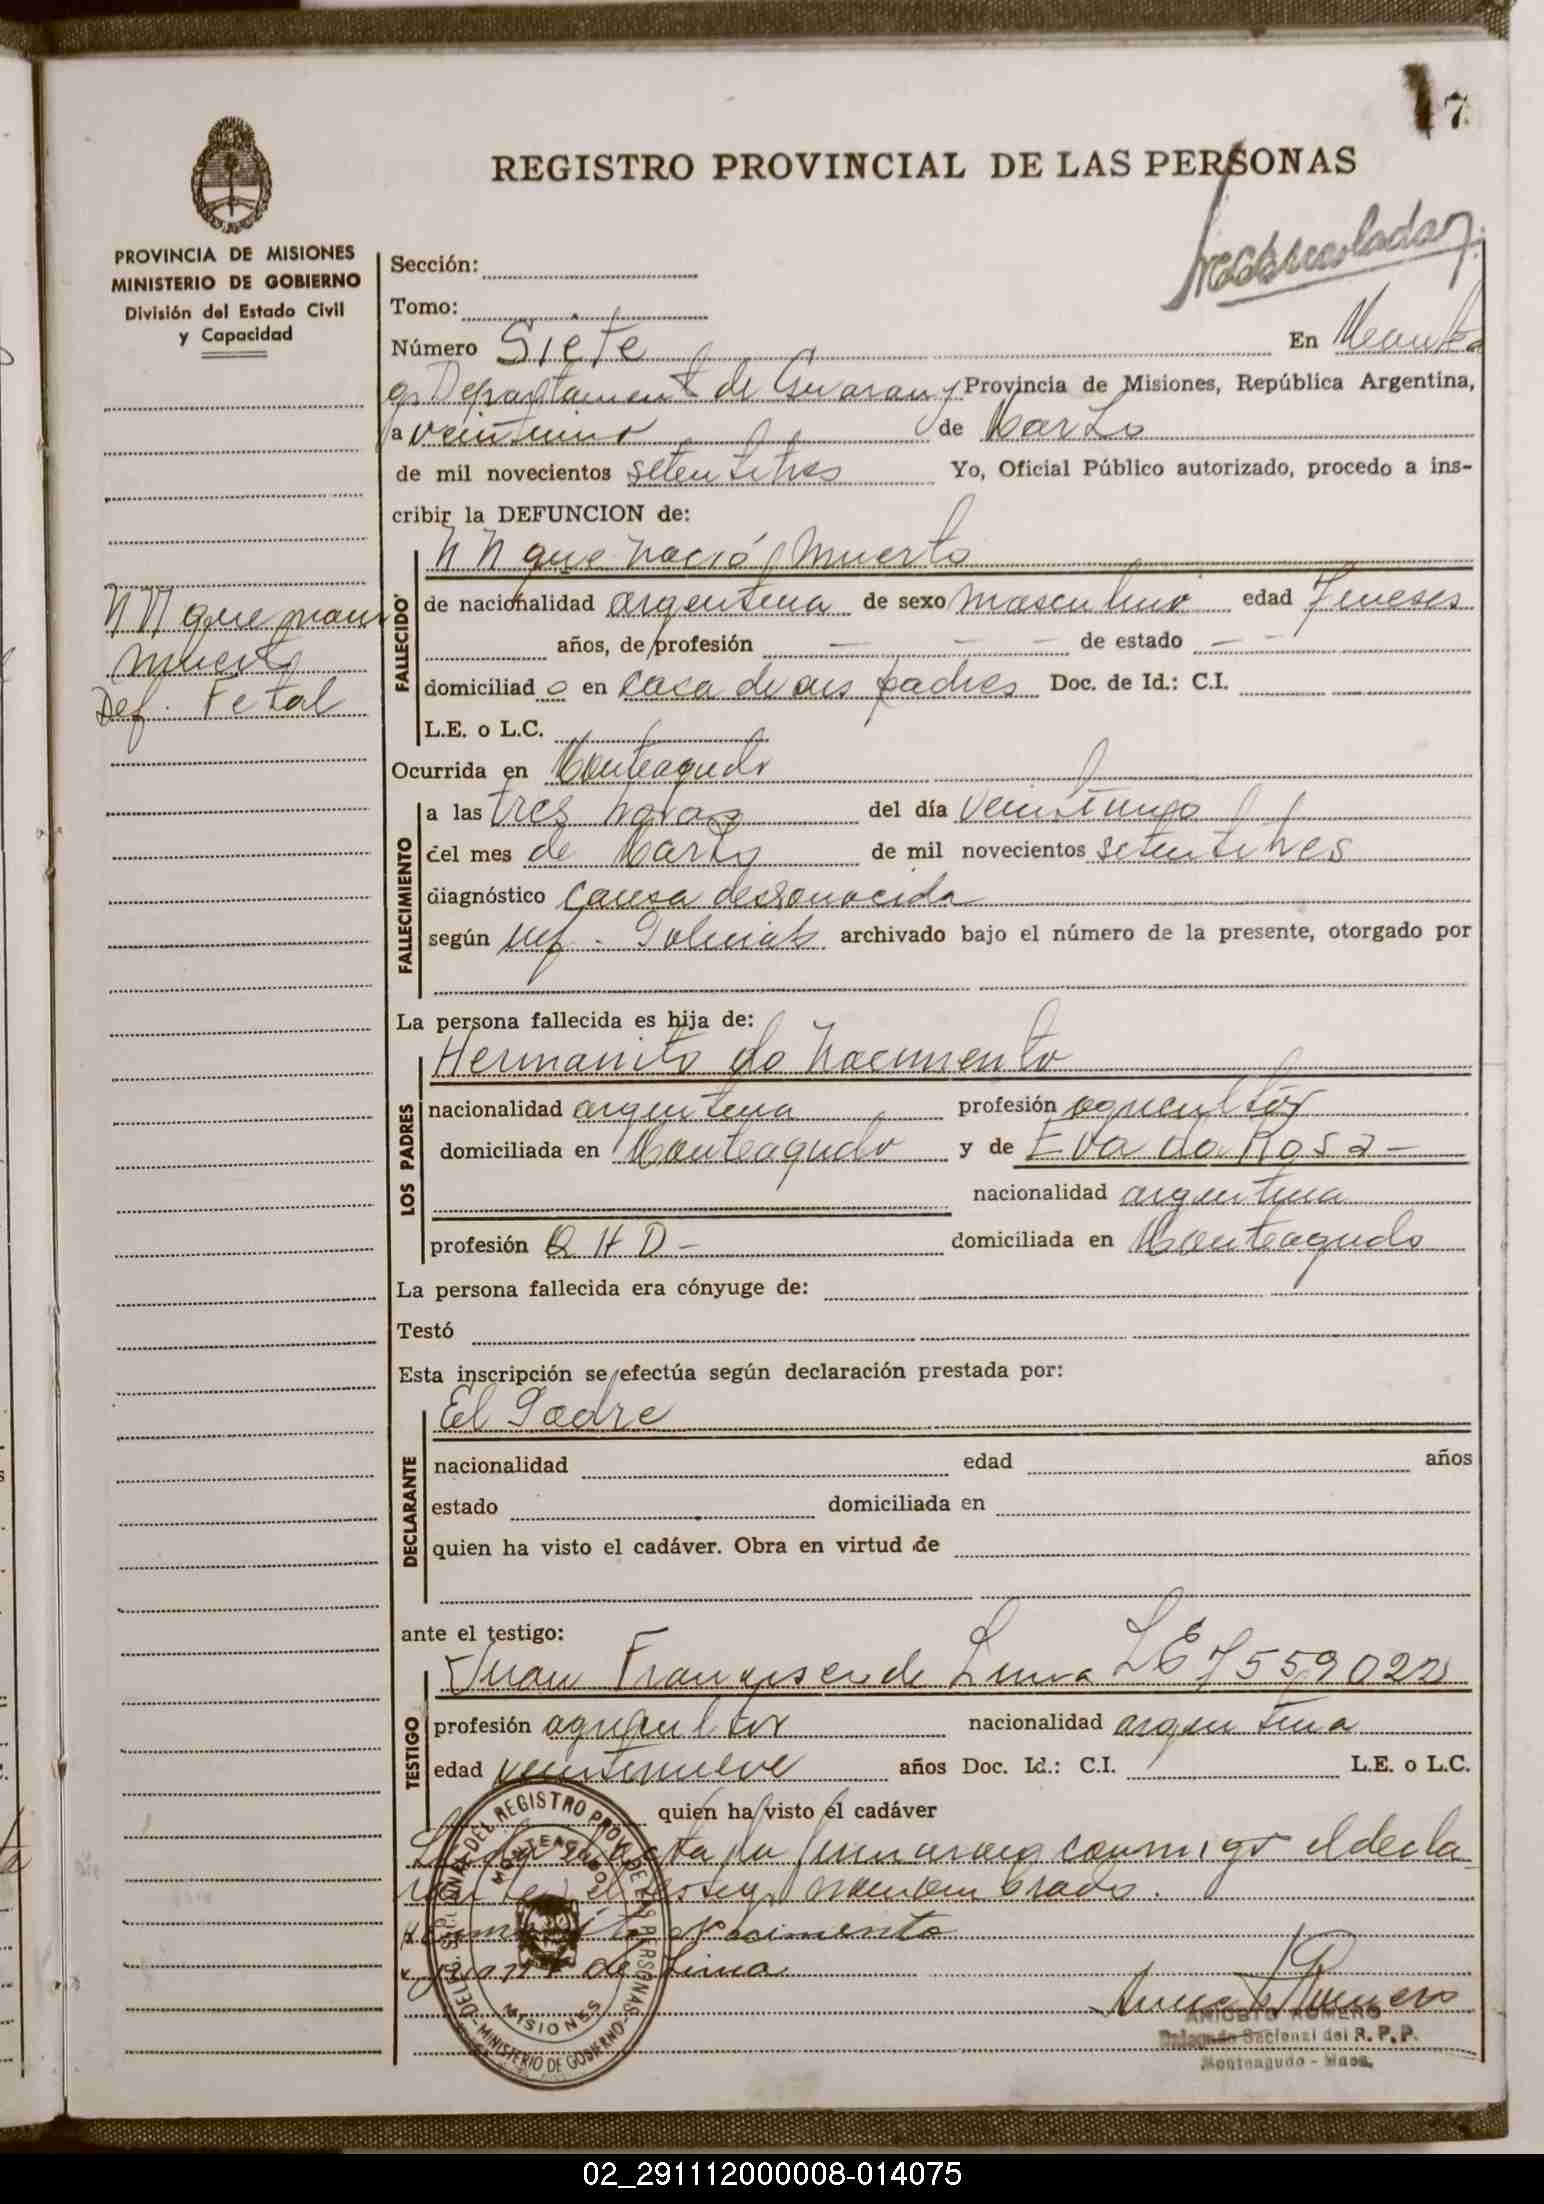 7
REGISTRO PROVINCIAL DE LAS PERSONAS
PROVINCIA DE MISIONES
MINISTERIO DE GOBIERNO
División del Estado Civil
y Capacidad
Sección:
Tomo:
Número Siete En Monteа
gº Departament de Guarany Provincia de Misiones, República Argentina,
a veintiuno de Marzo
de mil novecientos setentitres Yo, Oficial Público autorizado, procedo a ins-
cribir la DEFUNCION de:
N N que nació muerto
N N que nacio
muerto
Def. Fetal
FALLECIDO
de nacionalidad argentina de sexo masculino edad 7 meses
años, de profesión — — — de estado — —
domiciliad o en casa de sus padres Doc. de Id.: C.I.
L.E. o L.C.
Ocurrida en Monteagudo
FALLECIMIENTO
a las tres horas del día veintiuno
del mes de Marzo de mil novecientos setentitres
diagnóstico causa desconocida
según inf. Policial archivado bajo el número de la presente, otorgado por
La persona fallecida es hija de:
LOS PADRES
Hermanito do Nacimento
nacionalidad argentina profesión agricultor
domiciliada en Monteagudo y de Eva da Rosa -
nacionalidad argentina
profesión Q H D - domiciliada en Monteagudo
La persona fallecida era cónyuge de:
Testó
Esta inscripción se efectúa según declaración prestada por:
DECLARANTE
El Padre
nacionalidad edad años
estado domiciliada en
quien ha visto el cadáver. Obra en virtud de
ante el testigo:
TESTIGO
Juan Francisco de Lima LE 7559022
profesión agricultor nacionalidad argentina
edad veintinueve años Doc. Id.: C.I. L.E. o L.C.
quien ha visto el cadáver
Leida el acta la firmaron conmigo el decla
rante y el testigo nombrado.
Nacimento
Juan F. de Lima
DELEG. SECCIONAL DEL REGISTRO PROV. DE LAS PERSONAS
MONTEAGUDO
MISIONES
MINISTERIO DE GOBIERNO
ANICETO ROMERO
Delegado Secional del R. P. P.
Monteagudo - Mnes.
02_291112000008-014075